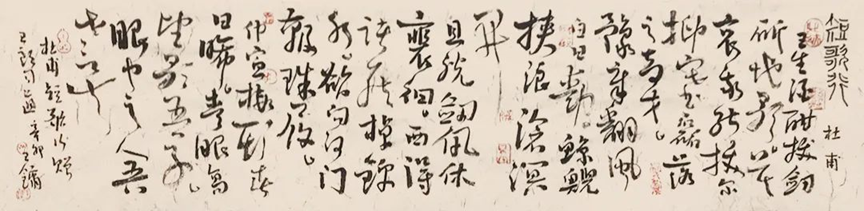 短歌行
杜甫
王生酒酣拔劍
斫地歌莫
哀我能拔尔
抑塞磊落
之奇才
豫章翻風
白日動鯨
浪滄溟
開
且脫劍佩休
裵徊西得
諸侯棹錦
水欲向何門
珠履
仲宣樓頭春
青眼高
歌望吾子
眼中之人吾
老矣
杜甫短歌行贈
王郎司直辛卯王鏞